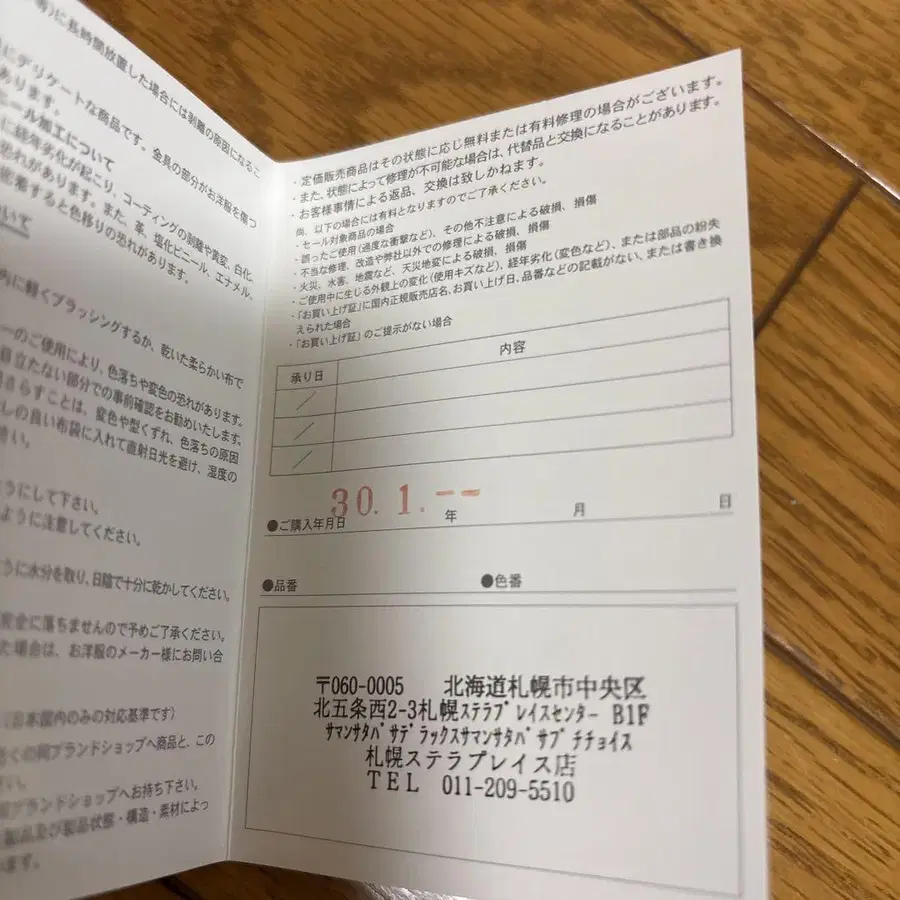 等)に長時間放置した場合には剥離の原因になるこ
にデリケートな商品です。金具の部分がお洋服を傷つ
あります。
ール加工について
に経年劣化が起こり、コーティングの剥離や黄変、白化、
恐れがあります。また、革、塩化ビニール、エナメル、
密着すると色移りの恐れがあります。
いて
内に軽くブラッシングするか、乾いた柔らかい布で
ーのご使用により、色落ちや変色の恐れがあります。
目立たない部分での事前確認をお勧めいたします。
さらすことは、変色や型くずれ、色落ちの原因
しの良い布袋に入れて直射日光を避け、湿度の
さい。
ようにして下さい。
ように注意してください。
うに水分を取り、日陰で十分に乾かしてください。
完全に落ちませんので予めご了承ください。
た場合は、お洋服のメーカー様にお問い合
(日本国内のみの対応基準です)
くの同ブランドショップへ商品と、この
同ブランドショップへお持ち下さい。
製品及び製品状態・構造・素材によっ
ます。
・定価販売商品はその状態に応じ無料または有料修理の場合がございます。
・また、状態によって修理が不可能な場合は、代替品と交換になることがあります。
・お客様事情による返品、交換は致しかねます。
尚、以下の場合には有料となりますのでご了承ください。
・セール対象商品の場合
・誤ったご使用(過度な衝撃など)、その他不注意による破損、損傷
・不当な修理、改造や弊社以外での修理による破損、損傷
・火災、水害、地震など、天災地変による破損、損傷
・ご使用中に生じる外観上の変化(使用キズなど)、経年劣化(変色など)、または部品の紛失
・「お買い上げ証」に国内正規販売店名、お買い上げ日、品番などの記載がない、または書き換
えられた場合
・「お買い上げ証」のご提示がない場合
承り日 内容
／
／
／
30. 1. --
●ご購入年月日 年 月 日
●品番 ●色番
〒060-0005 北海道札幌市中央区
北五条西2-3札幌ステラプレイスセンター B1F
サマンサタバサデラックスサマンサタバサプチチョイス
札幌ステラプレイス店
TEL 011-209-5510